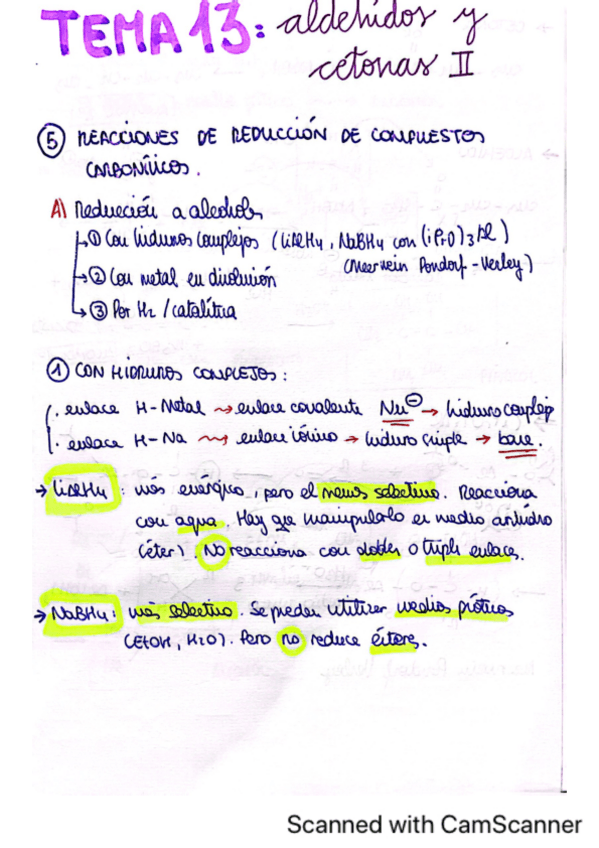 TEMA 13: aldehídos y
cetonas II
⑤ REACCIONES DE REDUCCIÓN DE COMPUESTOS
CARBONÍLICOS.
A) Reducción a alcoholes
→① Con hidruros complejos (LiAlH4, NaBH4 con (iPrO)3Al)
(Meerwein Pondorf-Verley)
→② Con metal en disolución
→③ Por H2 / catalítica
① CON HIDRUROS COMPLEJOS:
. enlace H-Metal → enlace covalente Nu⊖ → hidruro complejo
. enlace H-Na → enlace iónico → hidruro simple → base.
→ LiAlH4: más enérgico, pero el menos selectivo. Reacciona
con agua. Hay que manipularlo en medio anhidro
(éter). No reacciona con dobles o triples enlaces.
→ NaBH4: más selectivo. Se pueden utilizar medios próticos
(EtOH, H2O). Pero no reduce ésteres.
Scanned with CamScanner